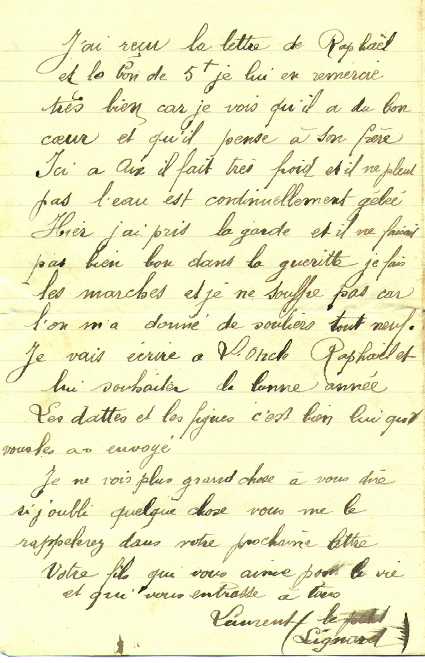 J'ai reçu la lettre de Raphaël
et le bon de 5f je lui en remercie
très bien car je vois qu'il a du bon
cœur et qu'il pense à son frère
Ici a Aix il fait très froid et il ne pleut
pas l'eau est continuellement gelée
Hier j'ai pris la garde et il ne faisait
pas bien bon dans la gueritte je fais
les marches et je ne souffre pas car
l'on m'a donné de souliers tout neuf.
Je vais écrire a l'Oncle Raphaël et
lui souhaiter la bonne année
Les dattes et les figues c'est bien lui qui
vous les as envoyé
Je ne vois plus grand chose à vous dire
si j'oubli quelque chose vous me le
rappelerez dans votre prochaine lettre
Votre fils qui vous aime pour la vie
et qui vous embrasse à tous
Laurent (le petit
Lignard)